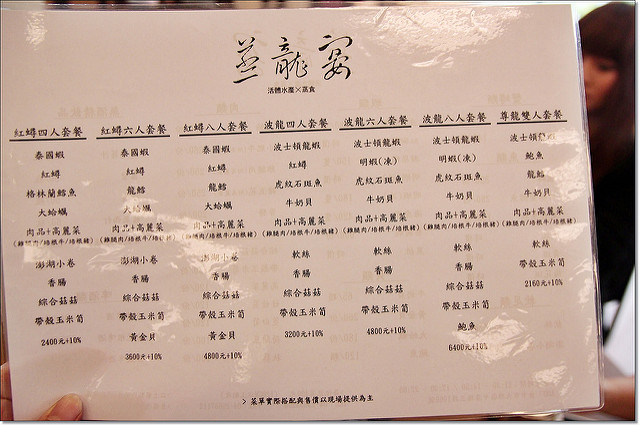 蒸龍宴
活體水產×蒸食
紅蟳四人套餐
泰國蝦
紅蟳
格林蘭鱈魚
大蛤蠣
肉品+高麗菜
(雞腿肉/培根牛/培根豬)
澎湖小卷
香腸
綜合菇菇
帶殼玉米筍
2400元+10%
紅蟳六人套餐
泰國蝦
紅蟳
龍鱈
大蛤蠣
肉品+高麗菜
(雞腿肉/培根牛/培根豬)
澎湖小卷
香腸
綜合菇菇
帶殼玉米筍
黃金貝
3600元+10%
紅蟳八人套餐
泰國蝦
紅蟳
龍鱈
大蛤蠣
肉品+高麗菜
(雞腿肉/培根牛/培根豬)
澎湖小卷
香腸
綜合菇菇
帶殼玉米筍
黃金貝
4800元+10%
波龍四人套餐
波士頓龍蝦
紅蟳
虎紋石斑魚
牛奶貝
肉品+高麗菜
(雞腿肉/培根牛/培根豬)
軟絲
香腸
綜合菇菇
帶殼玉米筍
3200元+10%
波龍六人套餐
波士頓龍蝦
明蝦(凍)
虎紋石斑魚
牛奶貝
肉品+高麗菜
(雞腿肉/培根牛/培根豬)
軟絲
香腸
綜合菇菇
帶殼玉米筍
4800元+10%
波龍八人套餐
波士頓龍蝦
明蝦(凍)
虎紋石斑魚
牛奶貝
肉品+高麗菜
(雞腿肉/培根牛/培根豬)
軟絲
香腸
綜合菇菇
帶殼玉米筍
鮑魚
6400元+10%
尊龍雙人套餐
波士頓龍蝦
鮑魚
龍鱈
牛奶貝
肉品+高麗菜
(雞腿肉/培根牛/培根豬)
軟絲
帶殼玉米筍
2160元+10%
> 菜單實際搭配與售價以現場提供為主